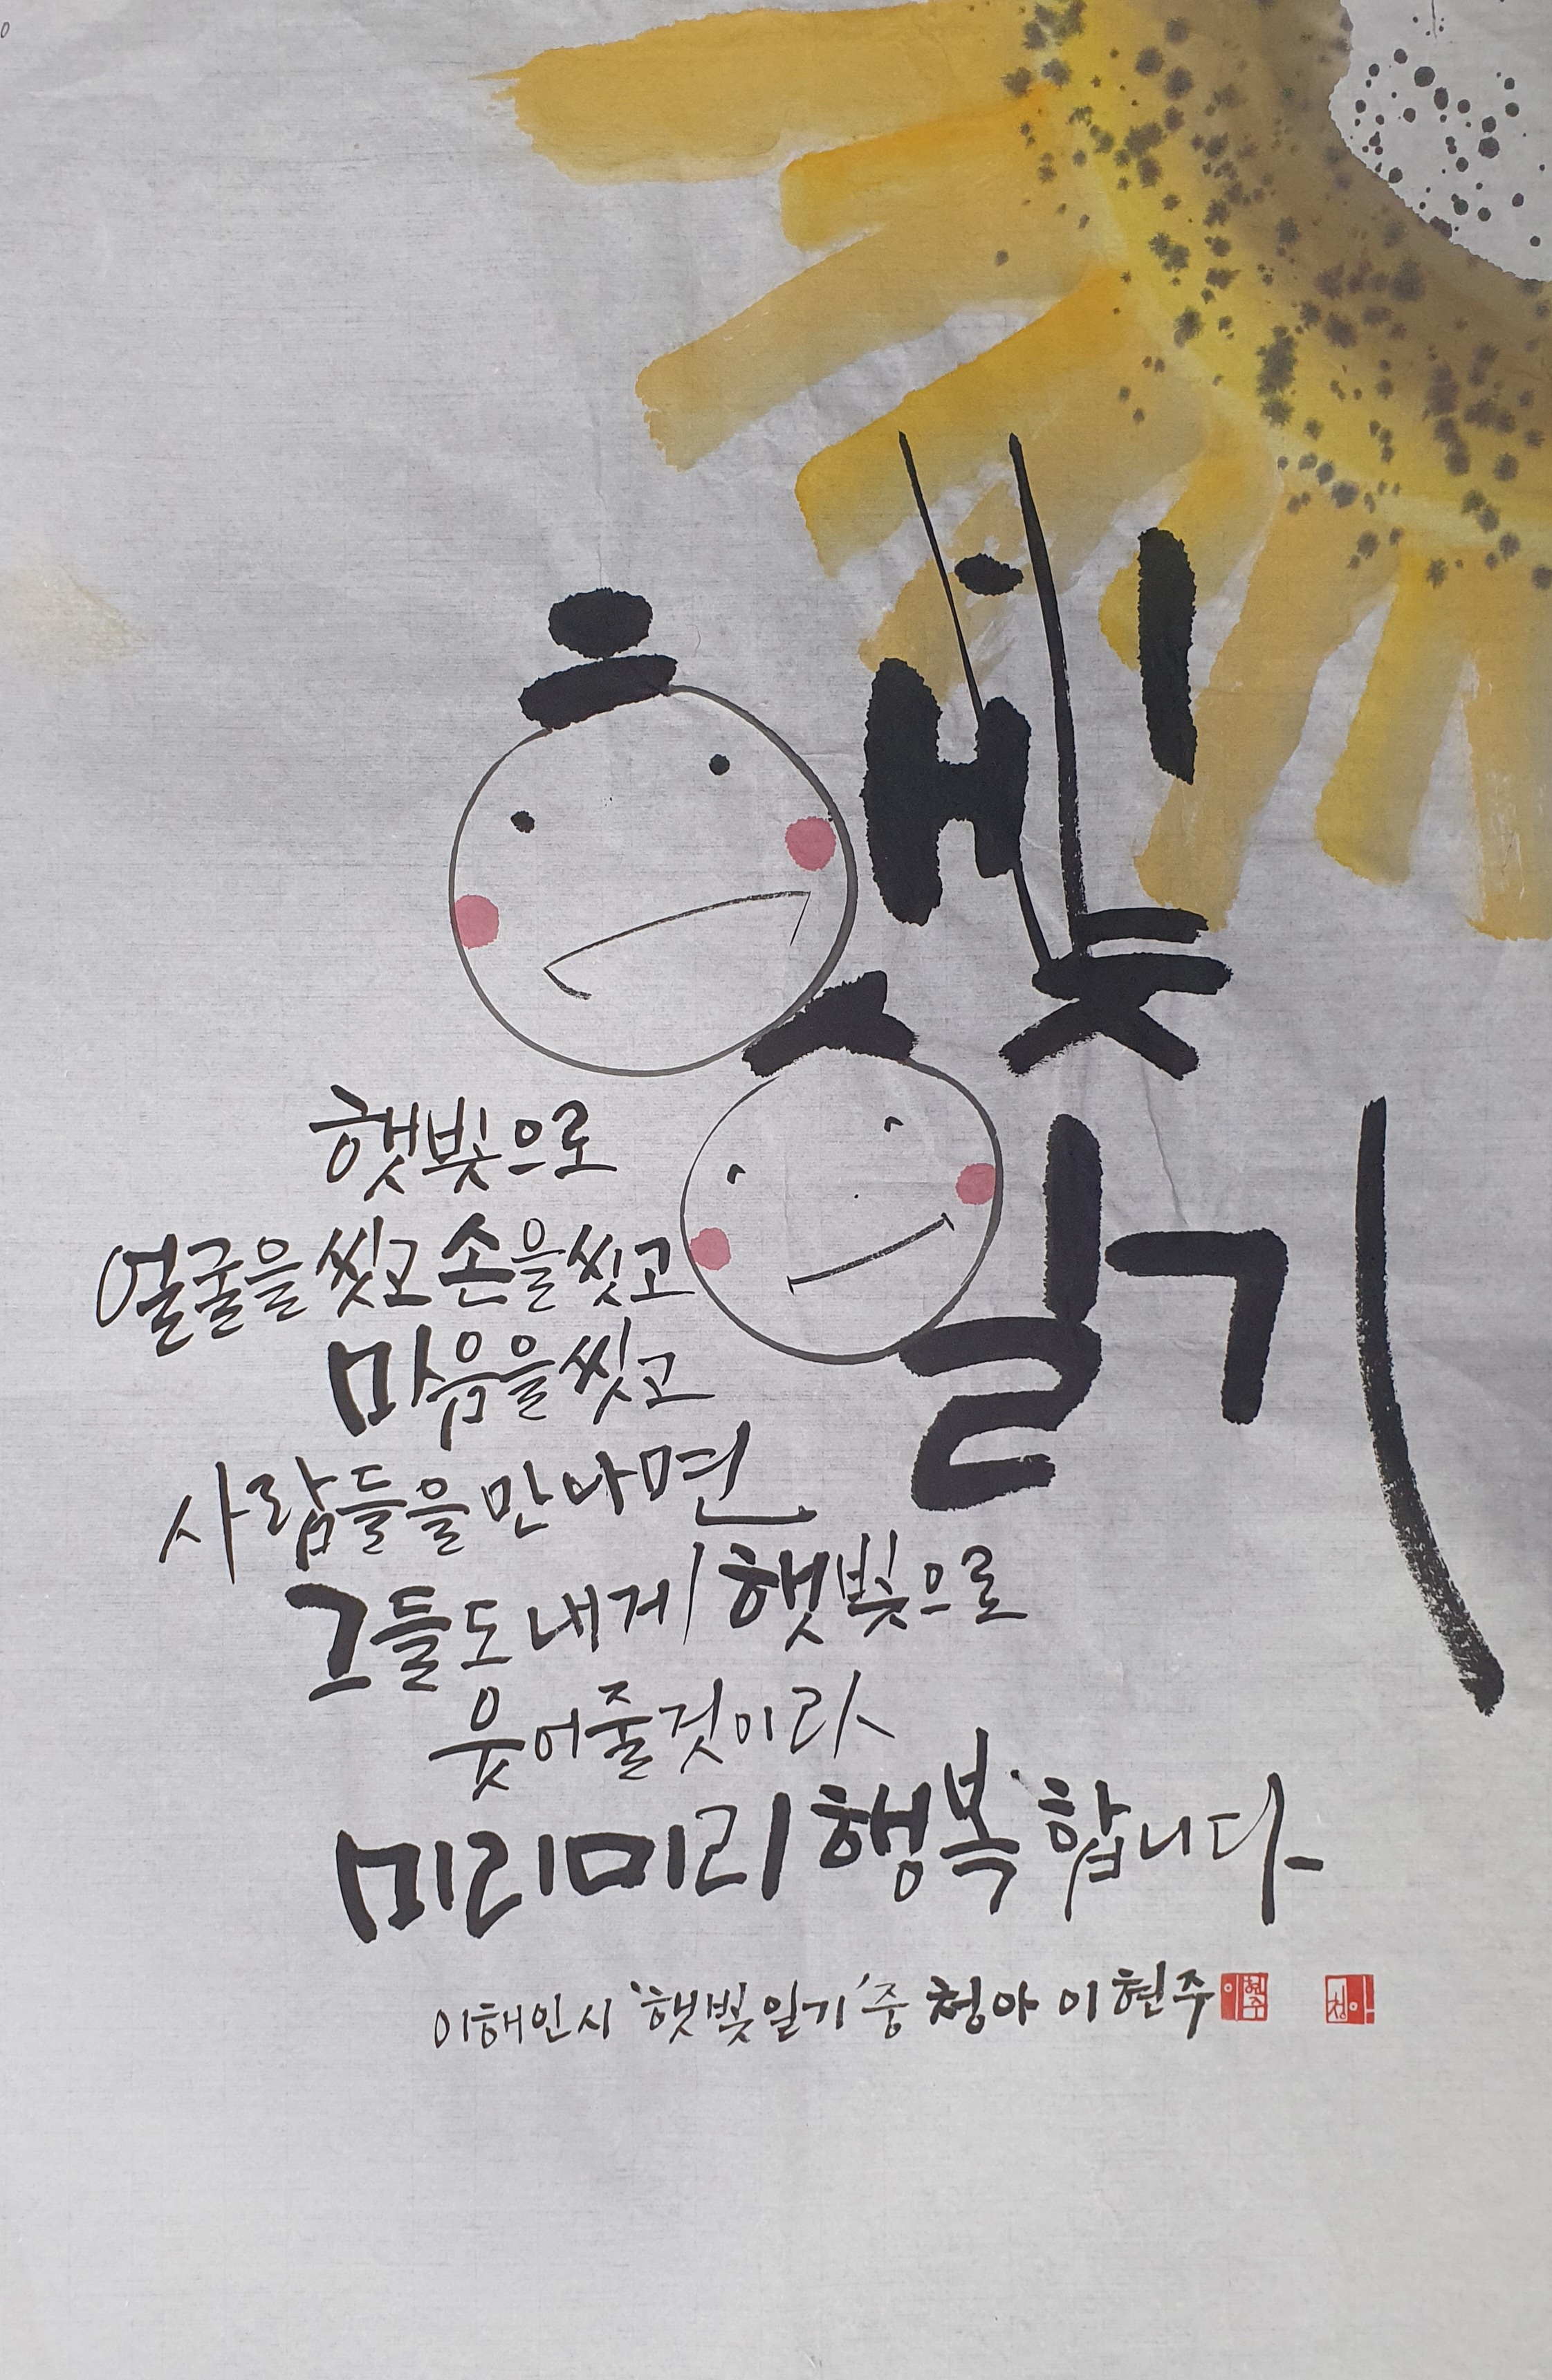 햇빛
일기
햇빛으로
얼굴을 씻고 손을 씻고
마음을 씻고
사람들을 만나면
그들도 내게 햇빛으로
웃어줄것이라
미리미리 행복합니다
이해인시 '햇빛일기' 중 청아 이현주